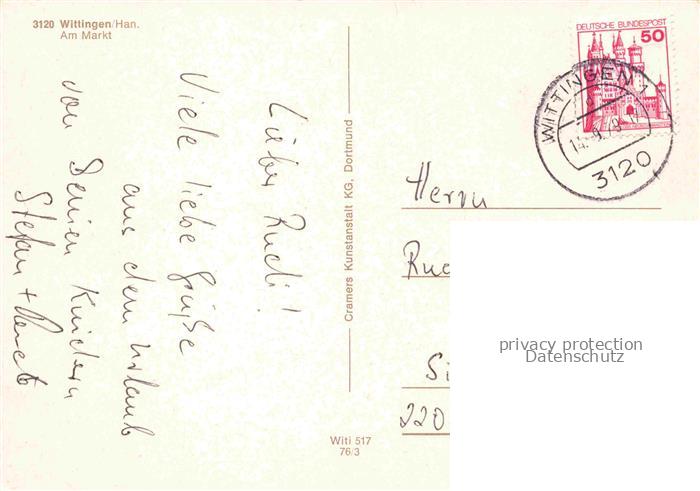 3120 Wittingen/Han.
Am Markt
Lieber Rudi!
Viele liebe Grüße
aus dem Urlaub
von Deinen Kindern
Stefan + Renate
Cramers Kunstanstalt KG, Dortmund
Witi 517
76/3
DEUTSCHE BUNDESPOST
50
WITTINGEN 1
14.-9.79
3120
Herrn
Rud
Si
220
privacy protection
Datenschutz